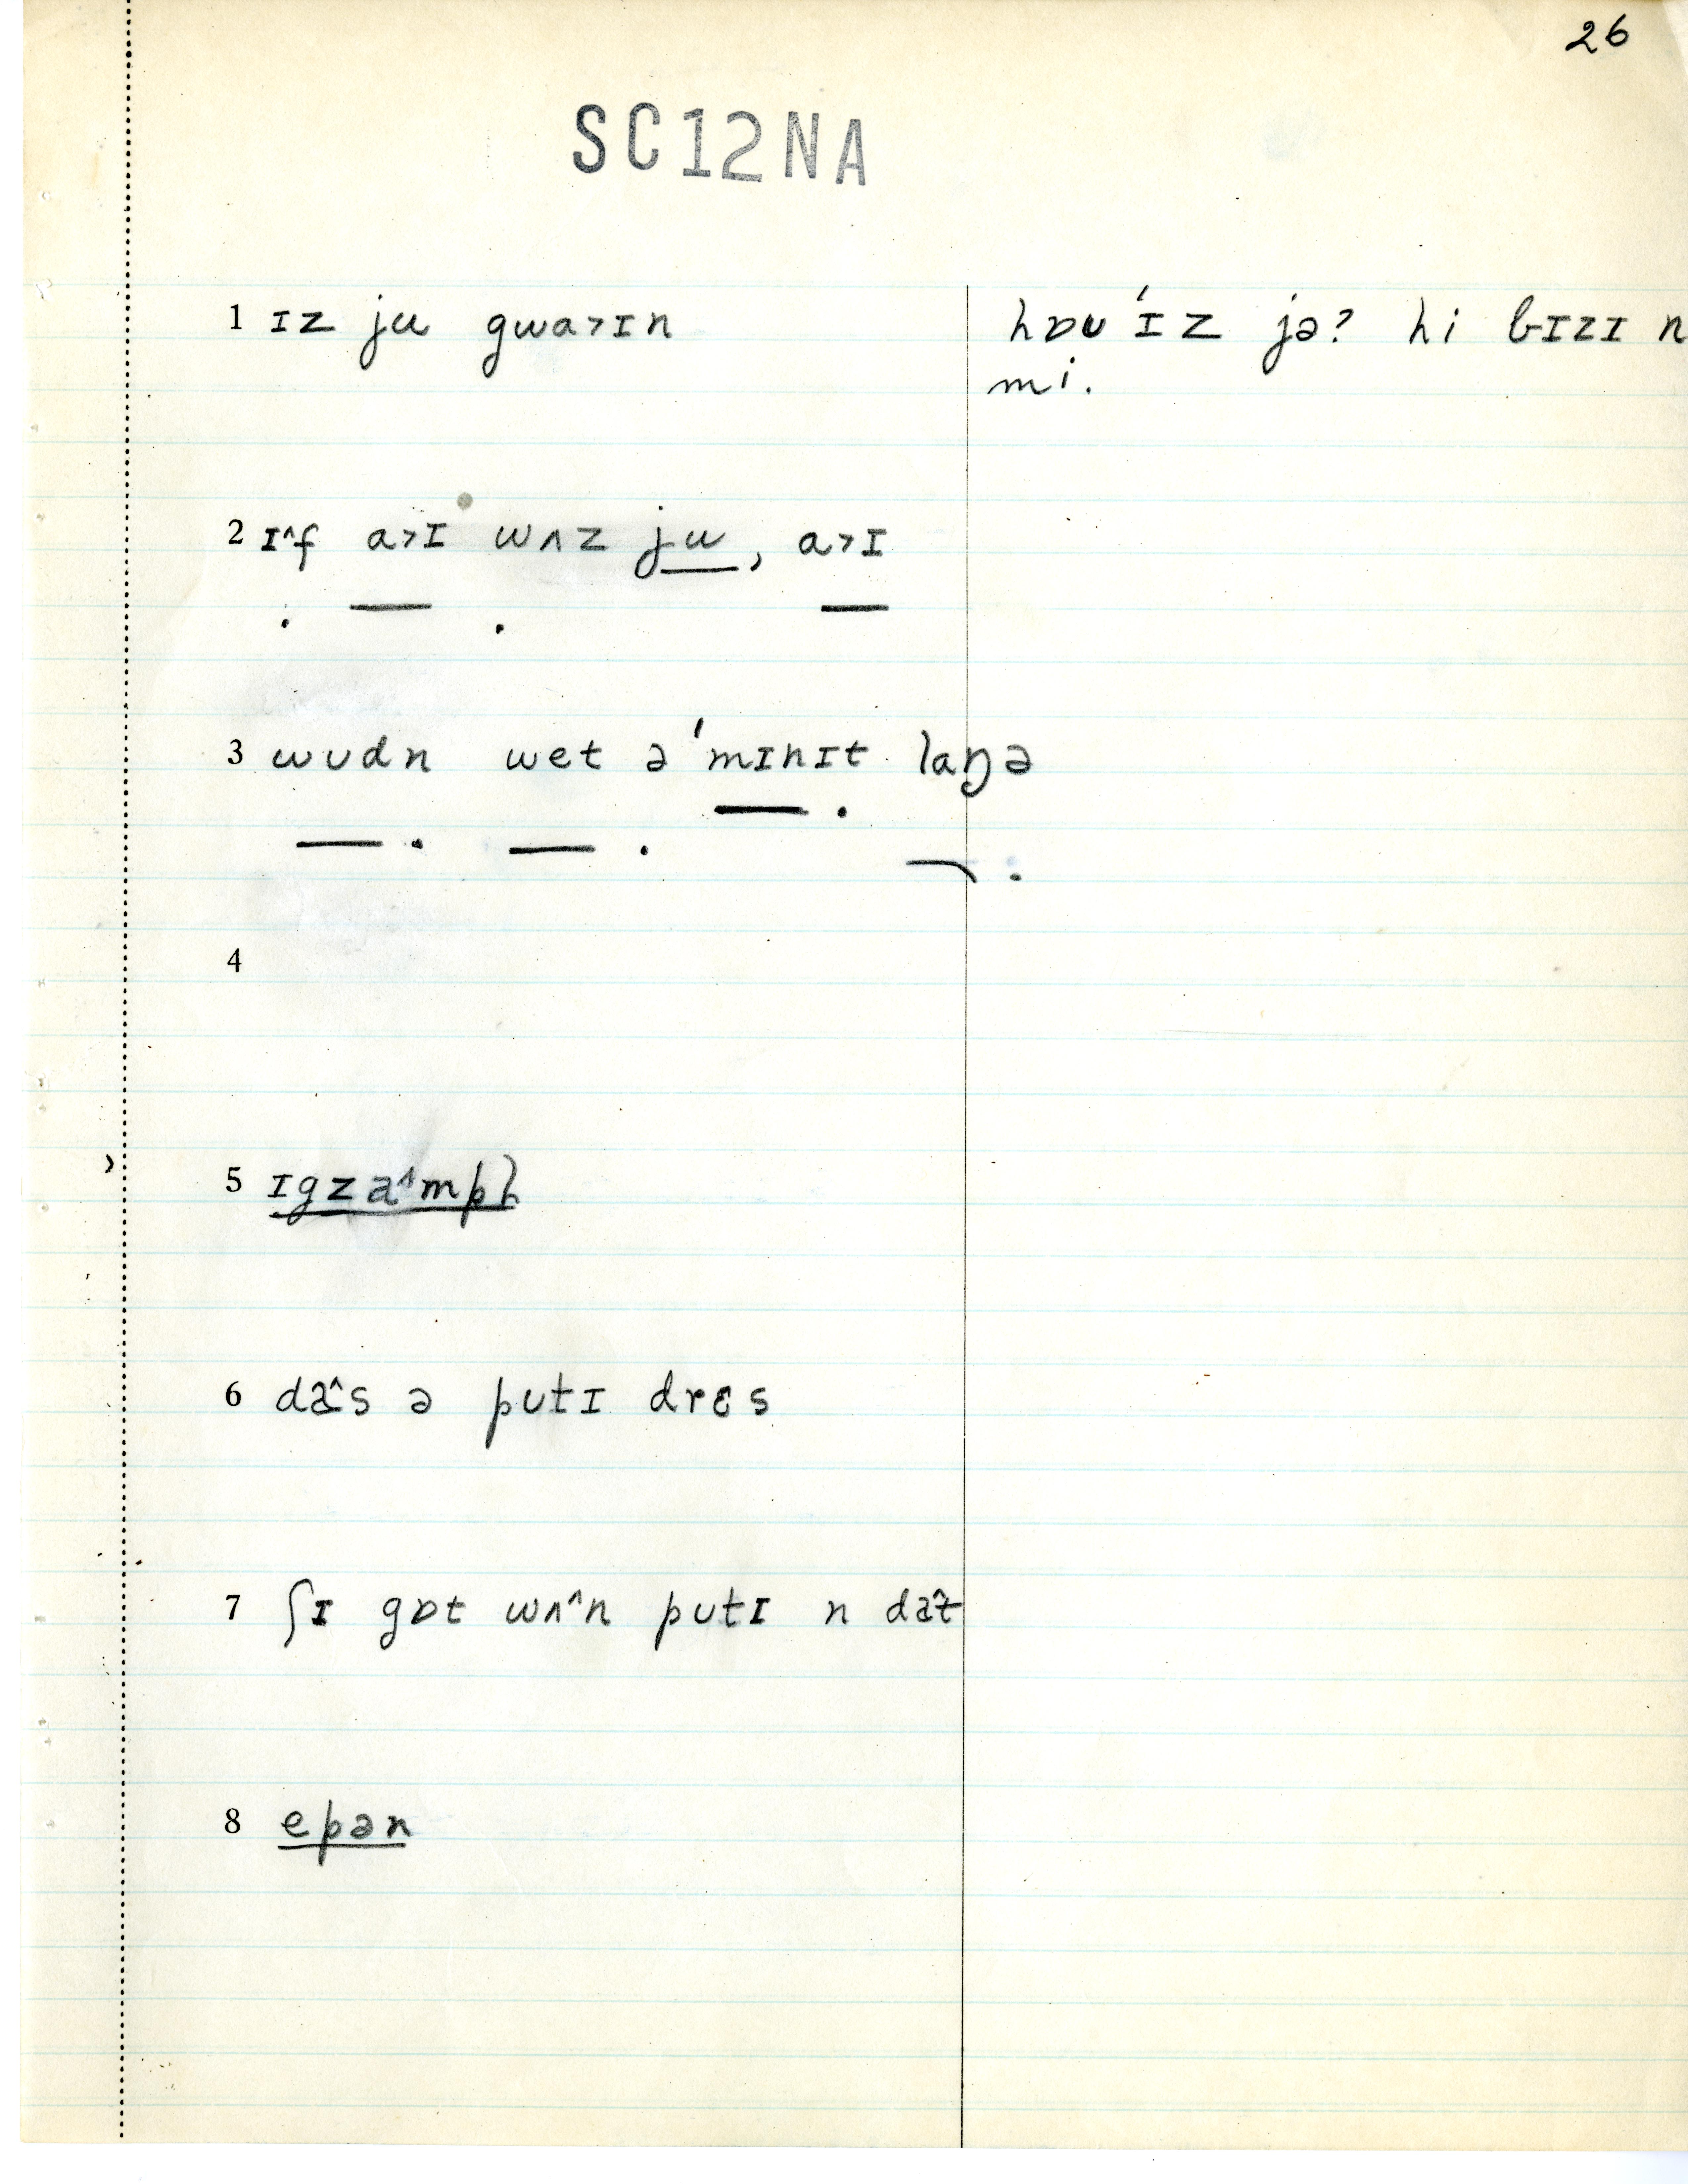 26
SC12NA
1 ɪz ju gwa˃ɪn
hɒʊ ˈɪz jə? hi bɪzɪ n
mi.
2 ɪ^f a˃ɪ wʌz ju, a˃ɪ
3 wʊdn wet ə ˈmɪnɪt laŋə
4
5
6 da^s ə pʊtɪ drɛs
7 ʃɪ gɒt wʌ^n pʊtɪ n da^t
8 epən